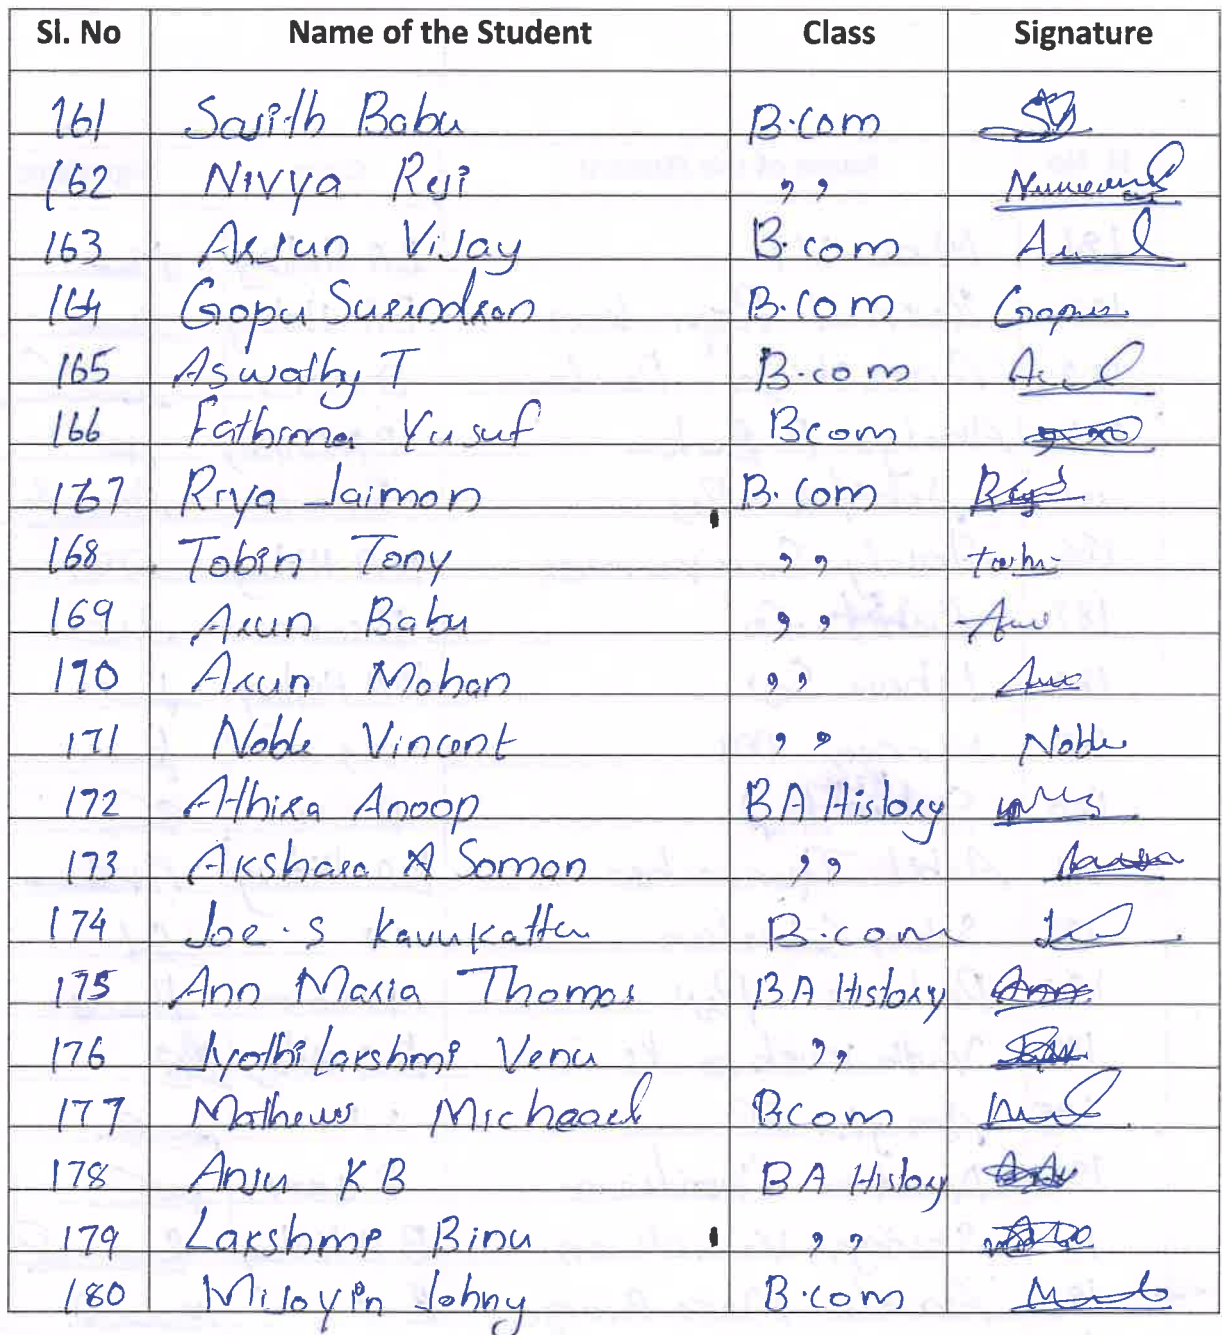 Sl. No Name of the Student Class Signature
161 Sarith Babu B.com
162 Nivya Reji ,,
163 Arjun Vijay B.com
164 Gopu Surendran B.com Gopu
165 Aswathy T B.com
166 Fathima Yusuf Bcom
167 Riya Jaimon B.com Riya
168 Tobin Tony ,,
169 Arun Babu ,,
170 Arun Mohan ,,
171 Noble Vincent ,, Noble
172 Athira Anoop BA History
173 Akshara A Soman ,,
174 Joe.S Kavukattu B.com
175 Ann Maria Thomas BA History
176 Jyothilakshmi Venu ,,
177 Mathews Michaael B.com
178 Anju K B BA History
179 Lakshmi Binu ,,
180 Mijoyin Johny B.com